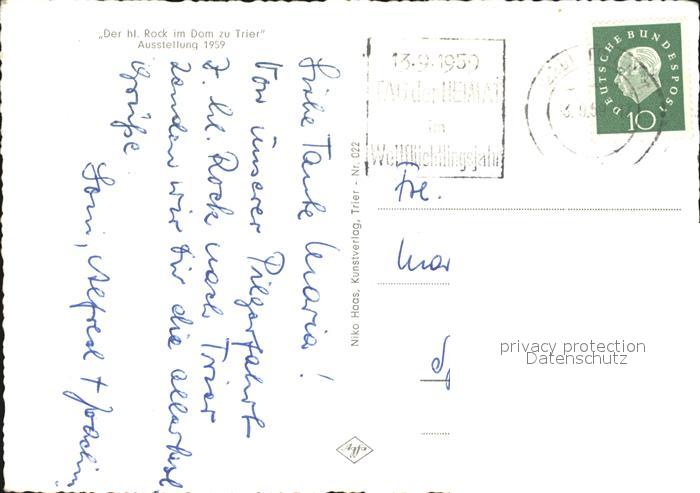 „Der hl. Rock im Dom zu Trier"
Ausstellung 1959
Liebe Tante Maria!
Von unserer Pilgerfahrt
z. hl. Rock nach Trier
senden wir Dir die allerherzl
Grüße.
Alfred + Joachim
Niko Haas, Kunstverlag, Trier - Nr. 022
13.9.1959
TAG der HEIMAT
im
Weltflüchtlingsjahr
DEUTSCHE BUNDESPOST
10
Frl.
Mar
privacy protection
Datenschutz